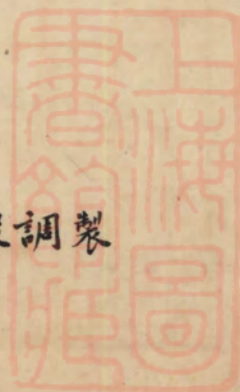 上海圖
書館藏
調製